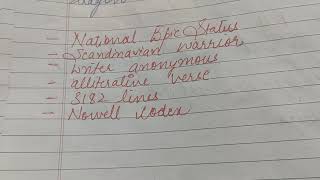 - National Epic Status
- Scandinavian warrior
- writer anonymous
- alliterative verse
- 3182 lines
- Nowell Codex